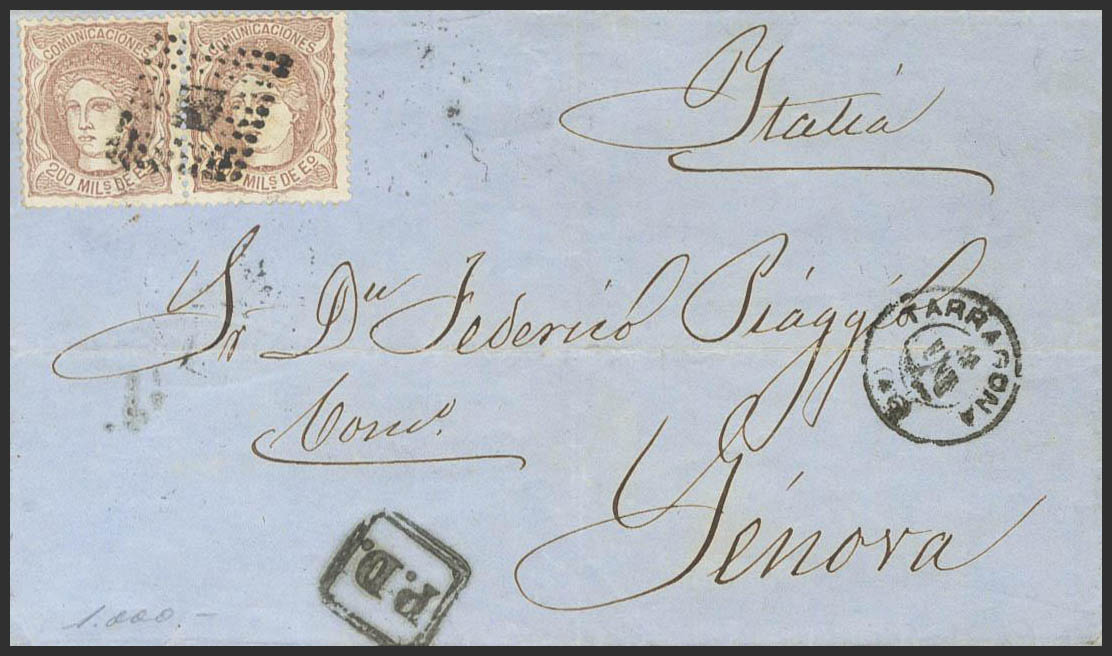 COMUNICACIONES COMUNICACIONES
200 MILS DE E MILS DE Eº
Italia
Sr Dn Federico Piaggio
TARRAGONA
Comº
Génova
P.D.
1.000.-